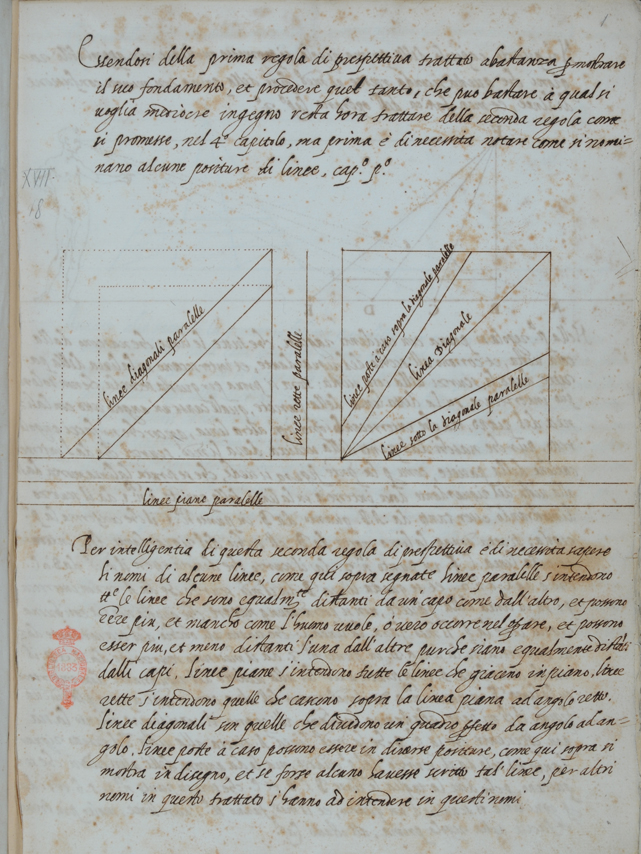 1
Essendosi della prima regola di prospettiva trattato abastanza p mostrare
il suo fondamento, et procedere quel tanto, che puo bastare à qual si
voglia mediocre ingegno resta hora trattare della seconda regola come
si promesse, nel 4.º capitolo, ma prima è di necessita notare come si nomi=
nano alcune positure di linee, cap.º p.º
XVII
18
linee diagonali paralelle
linee rette paralelle
linee poste à caso sopra la diagonale paralelle
linea Diagonale
linee sotto la diagonale paralelle
linee piane paralelle
Per intelligentia di questa seconda regola di prospettiva è di necessita sapere
li nomi di alcune linee, come qui sopra segnate linee paralelle s'intendono
tt.e le linee che sono equalm.te distanti da un capo come dall'altro, et possono
eēre piu, et mancho come l'huomo vuole, o vero occorre nel oprare, et possono
esser piu, et meno distanti l'una dall'altre purche siano equalmente distāti
dalli capi. linee piane s'intendono tutte le linee che giaceno in piano, linee
rette s'intendono quelle che cascono sopra la linea piana ad angolo retto.
linee diagonali son quelle che dividono un quadro da angolo ad an=
golo. linee poste à caso possono essere in diverse positure, come qui sopra si
mostra in disegno, et se forse alcuno havesse scritto tal' linee, per altri
nomi in questo trattato s'hanno ad intendere in questi nomi